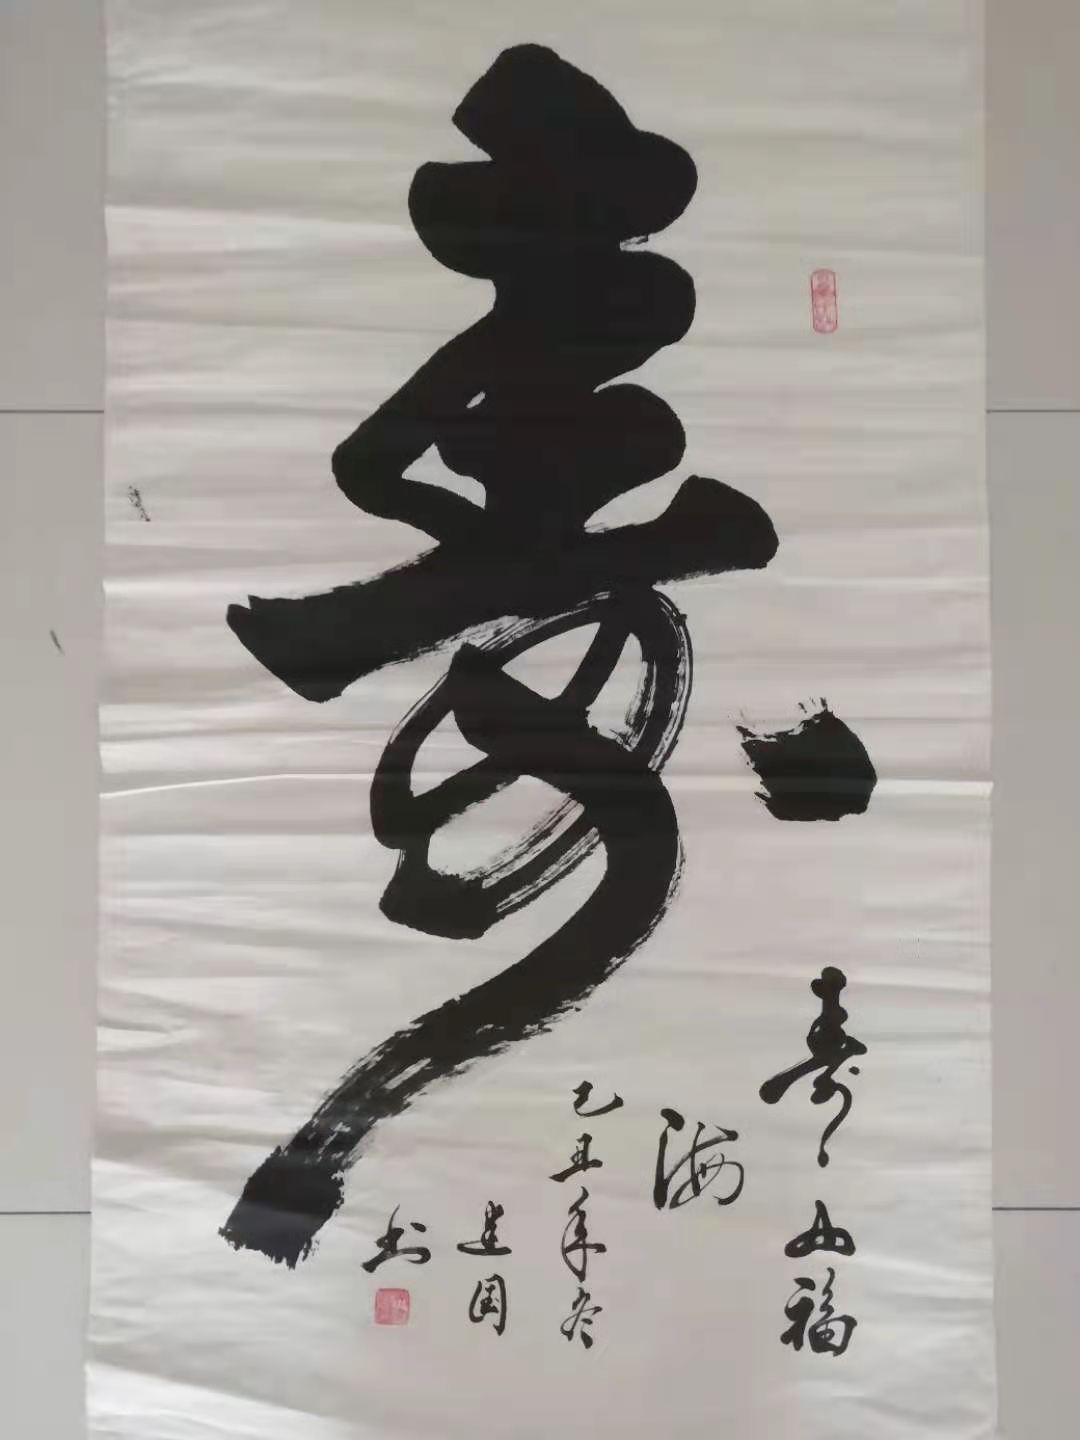 寿
寿山福
海
己丑年冬
建国
书